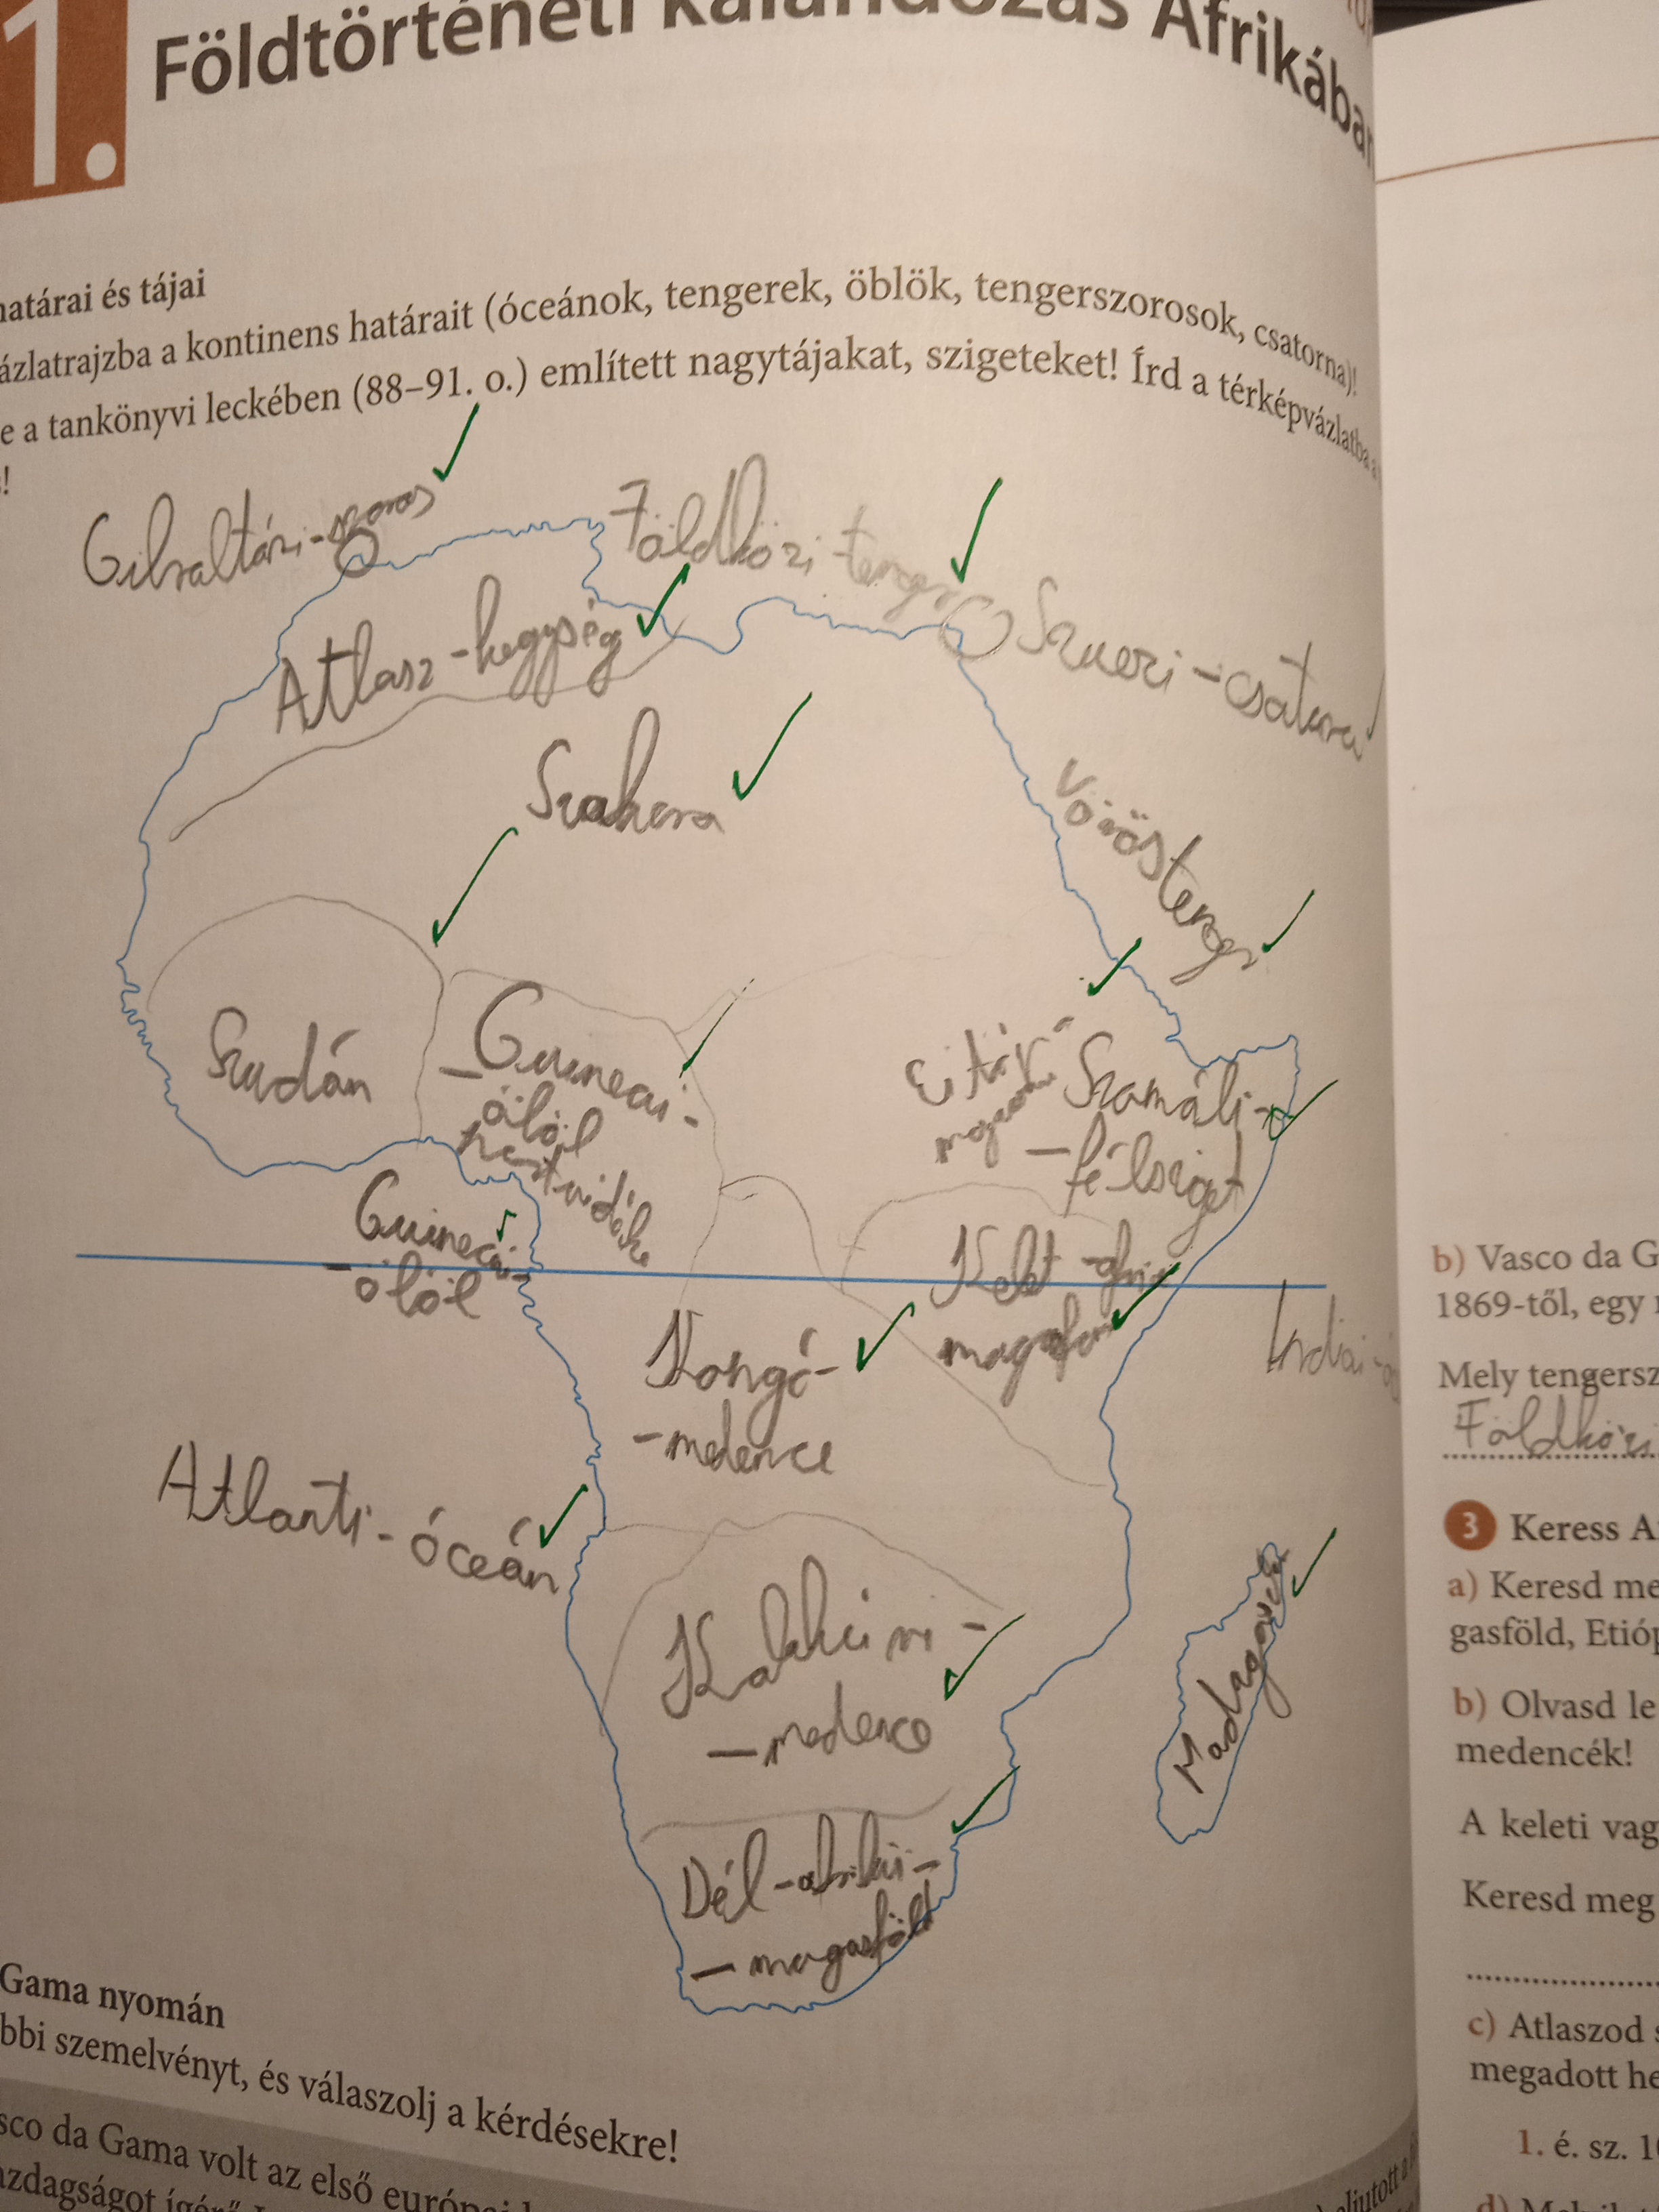 1.
Földtörténeti kalandozás Afrikában
határai és tájai
ázlatrajzba a kontinens határait (óceánok, tengerek, öblök, tengerszorosok, csatorna)!
e a tankönyvi leckében (88–91. o.) említett nagytájakat, szigeteket! Írd a térképvázlatba a
!
Gibraltári-szoros
Földközi-tenger
Szuezi-csatorna
Atlasz-hegység
Szahara
Vörös tenger
Szudán
Guineai-
-öböl
partvidéke
Szamáli-
-félsziget
Guineai-
-öböl
Kelet-afrikai
magasföld
Indiai-
Kongó-
-medence
Atlanti-óceán
Kalahári-
-medence
Madagaszkár
Dél-afrikai-
-magasföld
Gama nyomán
bbi szemelvényt, és válaszolj a kérdésekre!
sco da Gama volt az első európai
azdagságot ígérő"
eljutott a
b) Vasco da G
1869-től, egy
Mely tengersz
Földközi
3 Keress A
a) Keresd me
gasföld, Etióp
b) Olvasd le
medencék!
A keleti vag
Keresd meg
c) Atlaszod s
megadott he
1. é. sz. 1
d)